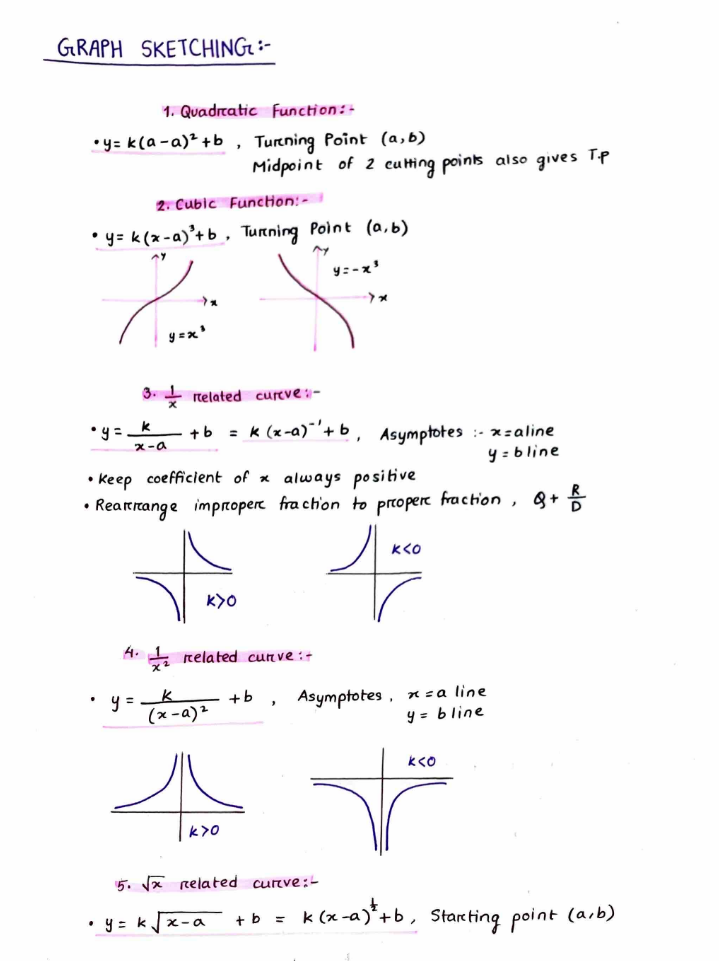 GRAPH SKETCHING:-
1. Quadratic Function:-
• y = k(a-a)² + b , Turning Point (a,b)
Midpoint of 2 cutting points also gives T.P
2. Cubic Function:-
• y = k(x-a)³ + b , Turning Point (a,b)
y
x
y = x³
y
y = -x³
x
3. 1/x related curve:-
• y = k/(x-a) + b = k(x-a)⁻¹ + b , Asymptotes :- x = a line
y = b line
• Keep coefficient of x always positive
• Rearrange improper fraction to proper fraction , Q + R/D
k<0
k>0
4. 1/x² related curve:-
• y = k/(x-a)² + b , Asymptotes , x = a line
y = b line
k<0
k>0
5. √x related curve:-
• y = k√(x-a) + b = k(x-a)^½ + b , Starting point (a,b)